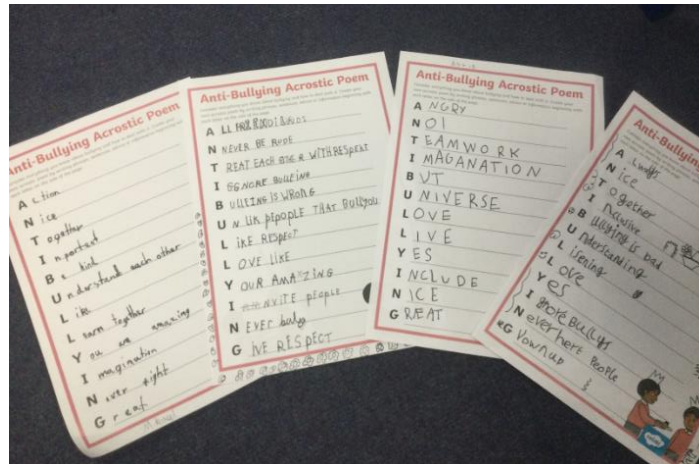 Anti-Bullying Acrostic Poem
Action
Nice
Together
Important
Be kind
Understand each other
Like
Learn together
You are amazing
Imagination
Never fight
Great
Anti-Bullying Acrostic Poem
ALL
NNEVER BE RUDE
TREAT EACH WITH RESPEKT
IGGNORE BULLEING
BULLEING IS WRONG
UN LIK PEOPLE THAT BULLYOU
LIKE RESPECT
LOVE LIKE
YOUR AMAZING
INVITE people
NEVER bully
GIVE RESPECT
Anti-Bullying Acrostic Poem
ANGRY
NOI
TEAMWORK
IMAGANATION
BUT
UNIVERSE
LOVE
LIVE
YES
INCLUDE
NICE
GREAT
Anti-Bullying
Always
Nice
Together
Inclusive
Bullying is bad
Understanding
Listening
Love
Yes
Ignore Bullys
Never hert People
Grownup